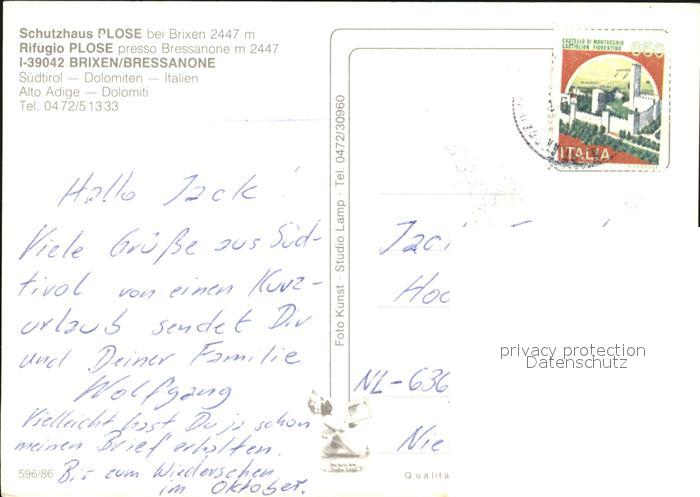 Schutzhaus PLOSE bei Brixen 2447 m
Rifugio PLOSE presso Bressanone m 2447
I-39042 BRIXEN/BRESSANONE
Südtirol — Dolomiten — Italien
Alto Adige — Dolomiti
Tel. 0472/51333
Hallo Jack!
Viele Grüße aus Süd-
tirol von einen Kurz-
urlaub sendet Dir
und Deiner Familie
Wolfgang
Vielleicht hast Du ja schon
meinen Brief erhalten.
Bis zum Wiedersehen
im Oktober.
596/86
Foto Kunst · Studio Lamp · Tel. 0472/30960
CASTELLO DI MONTECCHIO
CASTIGLION FIORENTINO
650
ITALIA
Hoc
NL-636
Nie
privacy protection
Datenschutz
Qualitä